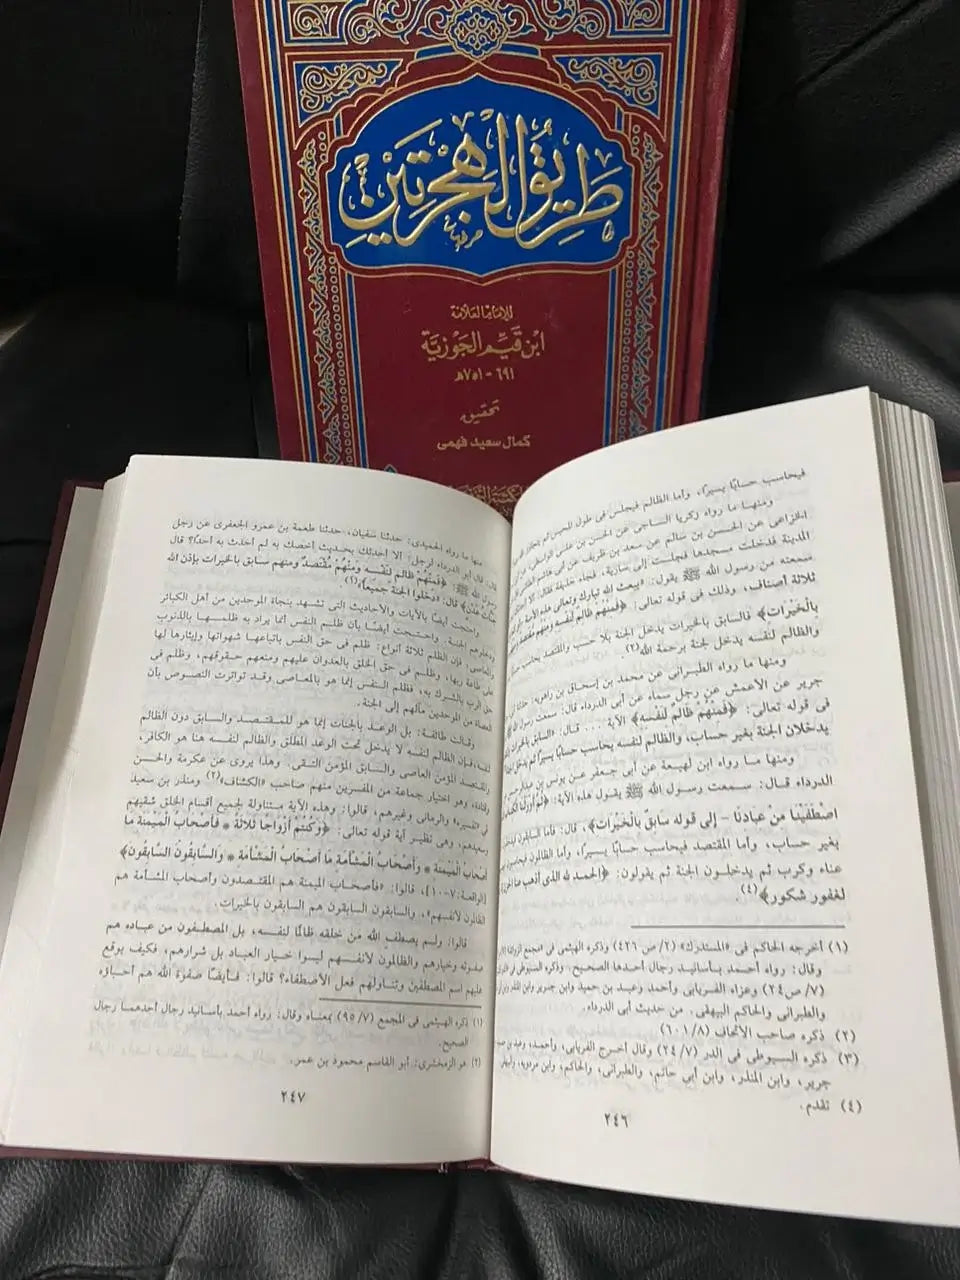 طريق الهجرتين
للإمام العلامة
ابن قيم الجوزية
٦٩١ - ٧٥١هـ
تحقيق
كمال سعيد فهمى
فيحاسب حسابًا يسيرًا، وأما الظالم فيجلس فى طول المحبس ثم
ومنهـا ما رواه زكريا الساجى عن الحسن بن على الواسطى عن
الخزاعى عن الحسـن بن سالم عن سعد بن ظريف عن أبى هاشم
المدينة فدخلت مسجدها فجلست إلى سارية، فجاء حذيفة فقال: ألا
سمعته من رسول الله ﷺ يقول: «يبعث الله تبارك وتعالى هذه الأمة
ثلاثة أصناف، وذلك فى قوله تعالى: ﴿فَمِنْهُمْ ظَالِمٌ لِّنَفْسِهِ وَمِنْهُم مُّقْتَصِدٌ
بِالْخَيْرَاتِ﴾ فالسابق بالخيرات يدخل الجنة بلا حساب والمقتصد يحاسب
والظالم لنفسه يدخل الجنة برحمة الله»(٢).
ومنها ما رواه الطبرانى عن محمد بن إسحاق بن راهويه:
جرير عن الأعمش عن رجل سماه عن أبى الدرداء قال: سمعت رسول الله
فى قوله تعالى: ﴿فَمِنْهُمْ ظَالِمٌ لِّنَفْسِهِ﴾ الآية ... قال: «السابق بالخيرات
يدخلان الجنة بغير حساب، والظالم لنفسه يحاسب حسابًا يسيرًا ثم يدخل
ومنها ما رواه ابن لهيعة عن أبى جعفر عن يونس بن
الدرداء قال: سمعت رسول الله ﷺ يقول هذه الآية: ﴿ثُمَّ أَوْرَثْنَا الْكِتَابَ
اصْطَفَيْنَا مِنْ عِبَادِنَا - إلى قوله سابق بالخَيْرَاتِ﴾، قال: فأما السابقون
بغير حساب، وأما المقتصد فيحاسب حسابًا يسيرًا، وأما الظالمون
عناء وكرب ثم يدخلـون الجنة ثم يقولون: ﴿الحمد لله الذى أذهب عنا الحزن
لغفور شكور﴾(٤).
(١) أخرجه الحاكم فى «المستدرك» (٢/ ص ٤٢٦) وذكره الهيثمى فى «مجمع الزوائد»
وقال: رواه أحمد بأسانيد رجال أحدها الصحيح. وذكره السيوطى فى
(٧/ ص٢٤) وعزاه الفريابى وأحمد وعبد بن حميد وابن جرير وابن المنذر
والطبرانى والحاكم البيهقى. من حديث أبى الدرداء.
(٢) ذكره صاحب الاتحاف (٦٠١/٨)
(٣) ذكره السيوطى فى الدر (٢٤/٧) وقال أخرج الفريابى، وأحمد، وعبد
جرير، وابن المنذر، وابن أبي حاتم، والطبرانى، والحاكم، وابن مردويه،
(٤) تقدم.
٢٤٦
منها ما رواه الحميدى: حدثنا سفيان، حدثنا طعمة بن عمرو الجعفرى عن رجل
قال: قال أبو الدرداء لرجل: ألا أحدثك بحديث أخصك به لم أحدث به أحدًا؟ قال
رسول الله ﷺ: ﴿فَمِنْهُمْ ظَالِمٌ لِّنَفْسِهِ وَمِنْهُمْ مُقْتَصِدٌ ومنهم سابق بالخيرات بإذن الله
جَنَّاتُ عَدْنٍ﴾ قال: «دخلوا الجنة جميعًا»(١).
واحتج أيضًا بالآيات والأحاديث التى تشهد بنجاة الموحدين من أهل الكبائر
ودخلوهم الجنة. واحتجت أيضًا بأن ظلم النفس أنما يراد به ظلمها بالذنوب
والمعاصى: فإن الظلم ثلاثة أنواع: ظلم فى حق النفس باتباعها شهواتها وإيثارها لها
على طاعة ربها، وظلم فى حق الخلق بالعدوان عليهم ومنعهم حقوقهم، وظلم فى
حق الرب بالشرك به، فظلم النفس إنما هو بالمعاصى وقد تواترت النصوص بأن
العصاة من الموحدين مآلهم إلى الجنة.
وقالت طائفة: بل الوعد بالجنات إنما هو للمقتصد والسابق دون الظالم
لنفسه، فإن الظالم لنفسه لا يدخل تحت الوعد المطلق والظالم لنفسه هنا هو الكافر،
والمقتصد المؤمن العاصى والسابق المؤمن التقى. وهذا يروى عن عكرمة والحسن
وقتادة، وهو اختيار جماعة من المفسرين منهم صاحب «الكشاف»(٢) ومنذر بن سعيد
فى تفسيره والرمانى وغيرهم، قالوا: وهذه الآية متناولة لجميع أقسام الخلق شقيهم
وسعيدهم، وهى نظير آية قوله تعالى: ﴿وَكُنتُمْ أَزْوَاجًا ثَلاثَةً * فَأَصْحَابُ المَيْمَنَةِ مَا
أَصْحَابُ الْمَيْمَنَةِ * وَأَصْحَابُ الْمَشْأَمَةِ مَا أَصْحَابُ الْمَشْأَمَةِ * وَالسَّابِقُونَ السَّابِقُونَ﴾
[الواقعة: ٧-١٠]، قالوا: «فأصحاب الميمنة هم المقتصدون وأصحاب المشأمة هم
الظالمون لأنفسهم»، والسابقون السابقون هم السابقون بالخيرات.
قالوا: ولم يصطف الله من خلقه ظالمًا لنفسه، بل المصطفون من عباده هم
صفوته وخيارهم والظالمون لأنفسهم ليسوا خيار العباد بل شرارهم، فكيف يوقع
عليهم اسم المصطفين ويتناولهم فعل الاصطفاء؟ قالوا: فـأيضًا صفوة الله هم أحباؤه
(١) ذكره الهيثمى فى المجمع (٩٥/٧) بمعناه وقال: رواه أحمد بأسانيد رجال أحدهما رجال
الصحيح.
(٢) هو الزمخشرى: أبو القاسم محمود بن عمر.
٢٤٧